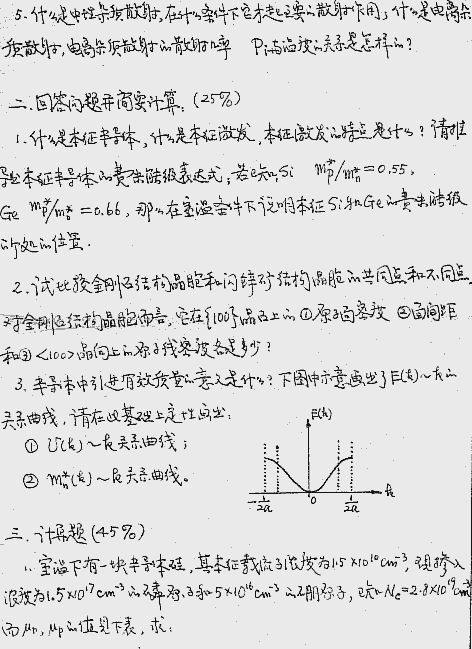 5. 什么是中性杂质散射,在什么条件下它才起主要的散射作用;什么是电离杂
质散射,电离杂质散射的散射几率 Pi与温度的关系是怎样的?
二. 回答问题并简要计算. (25%)
1. 什么是本征半导体,什么是本征激发,本征激发的特点是什么?请推
导出本征半导体的费米能级表达式,若已知Si mp*/mn*=0.55,
Ge mp*/mn*=0.66, 那么在室温条件下说明本征Si和Ge的费米能级
的所处的位置.
2. 试比较金刚石结构晶胞和闪锌矿结构晶胞的共同点和不同点
对金刚石结构晶胞而言,它在{100}晶面上的①原子面密度 ②面间距
和③<100>晶向上的原子线密度各是多少?
3. 半导体中引进有效质量的意义是什么?下图中示意画出了E(k)~k的
关系曲线,请在此基础上定性画出:
① V(k)~k关系曲线;
② mn*(k)~k关系曲线。
E(k)
-1/2a 0 1/2a k
三. 计算题(45%)
1. 室温下有一块半导体硅,其本征载流子浓度为1.5×10^10cm^-3, 现掺入
浓度为1.5×10^17cm^-3的磷原子和5×10^16cm^-3的硼原子,已知Nc=2.8×10^19cm^-3
而μn, μp的值见下表,求: